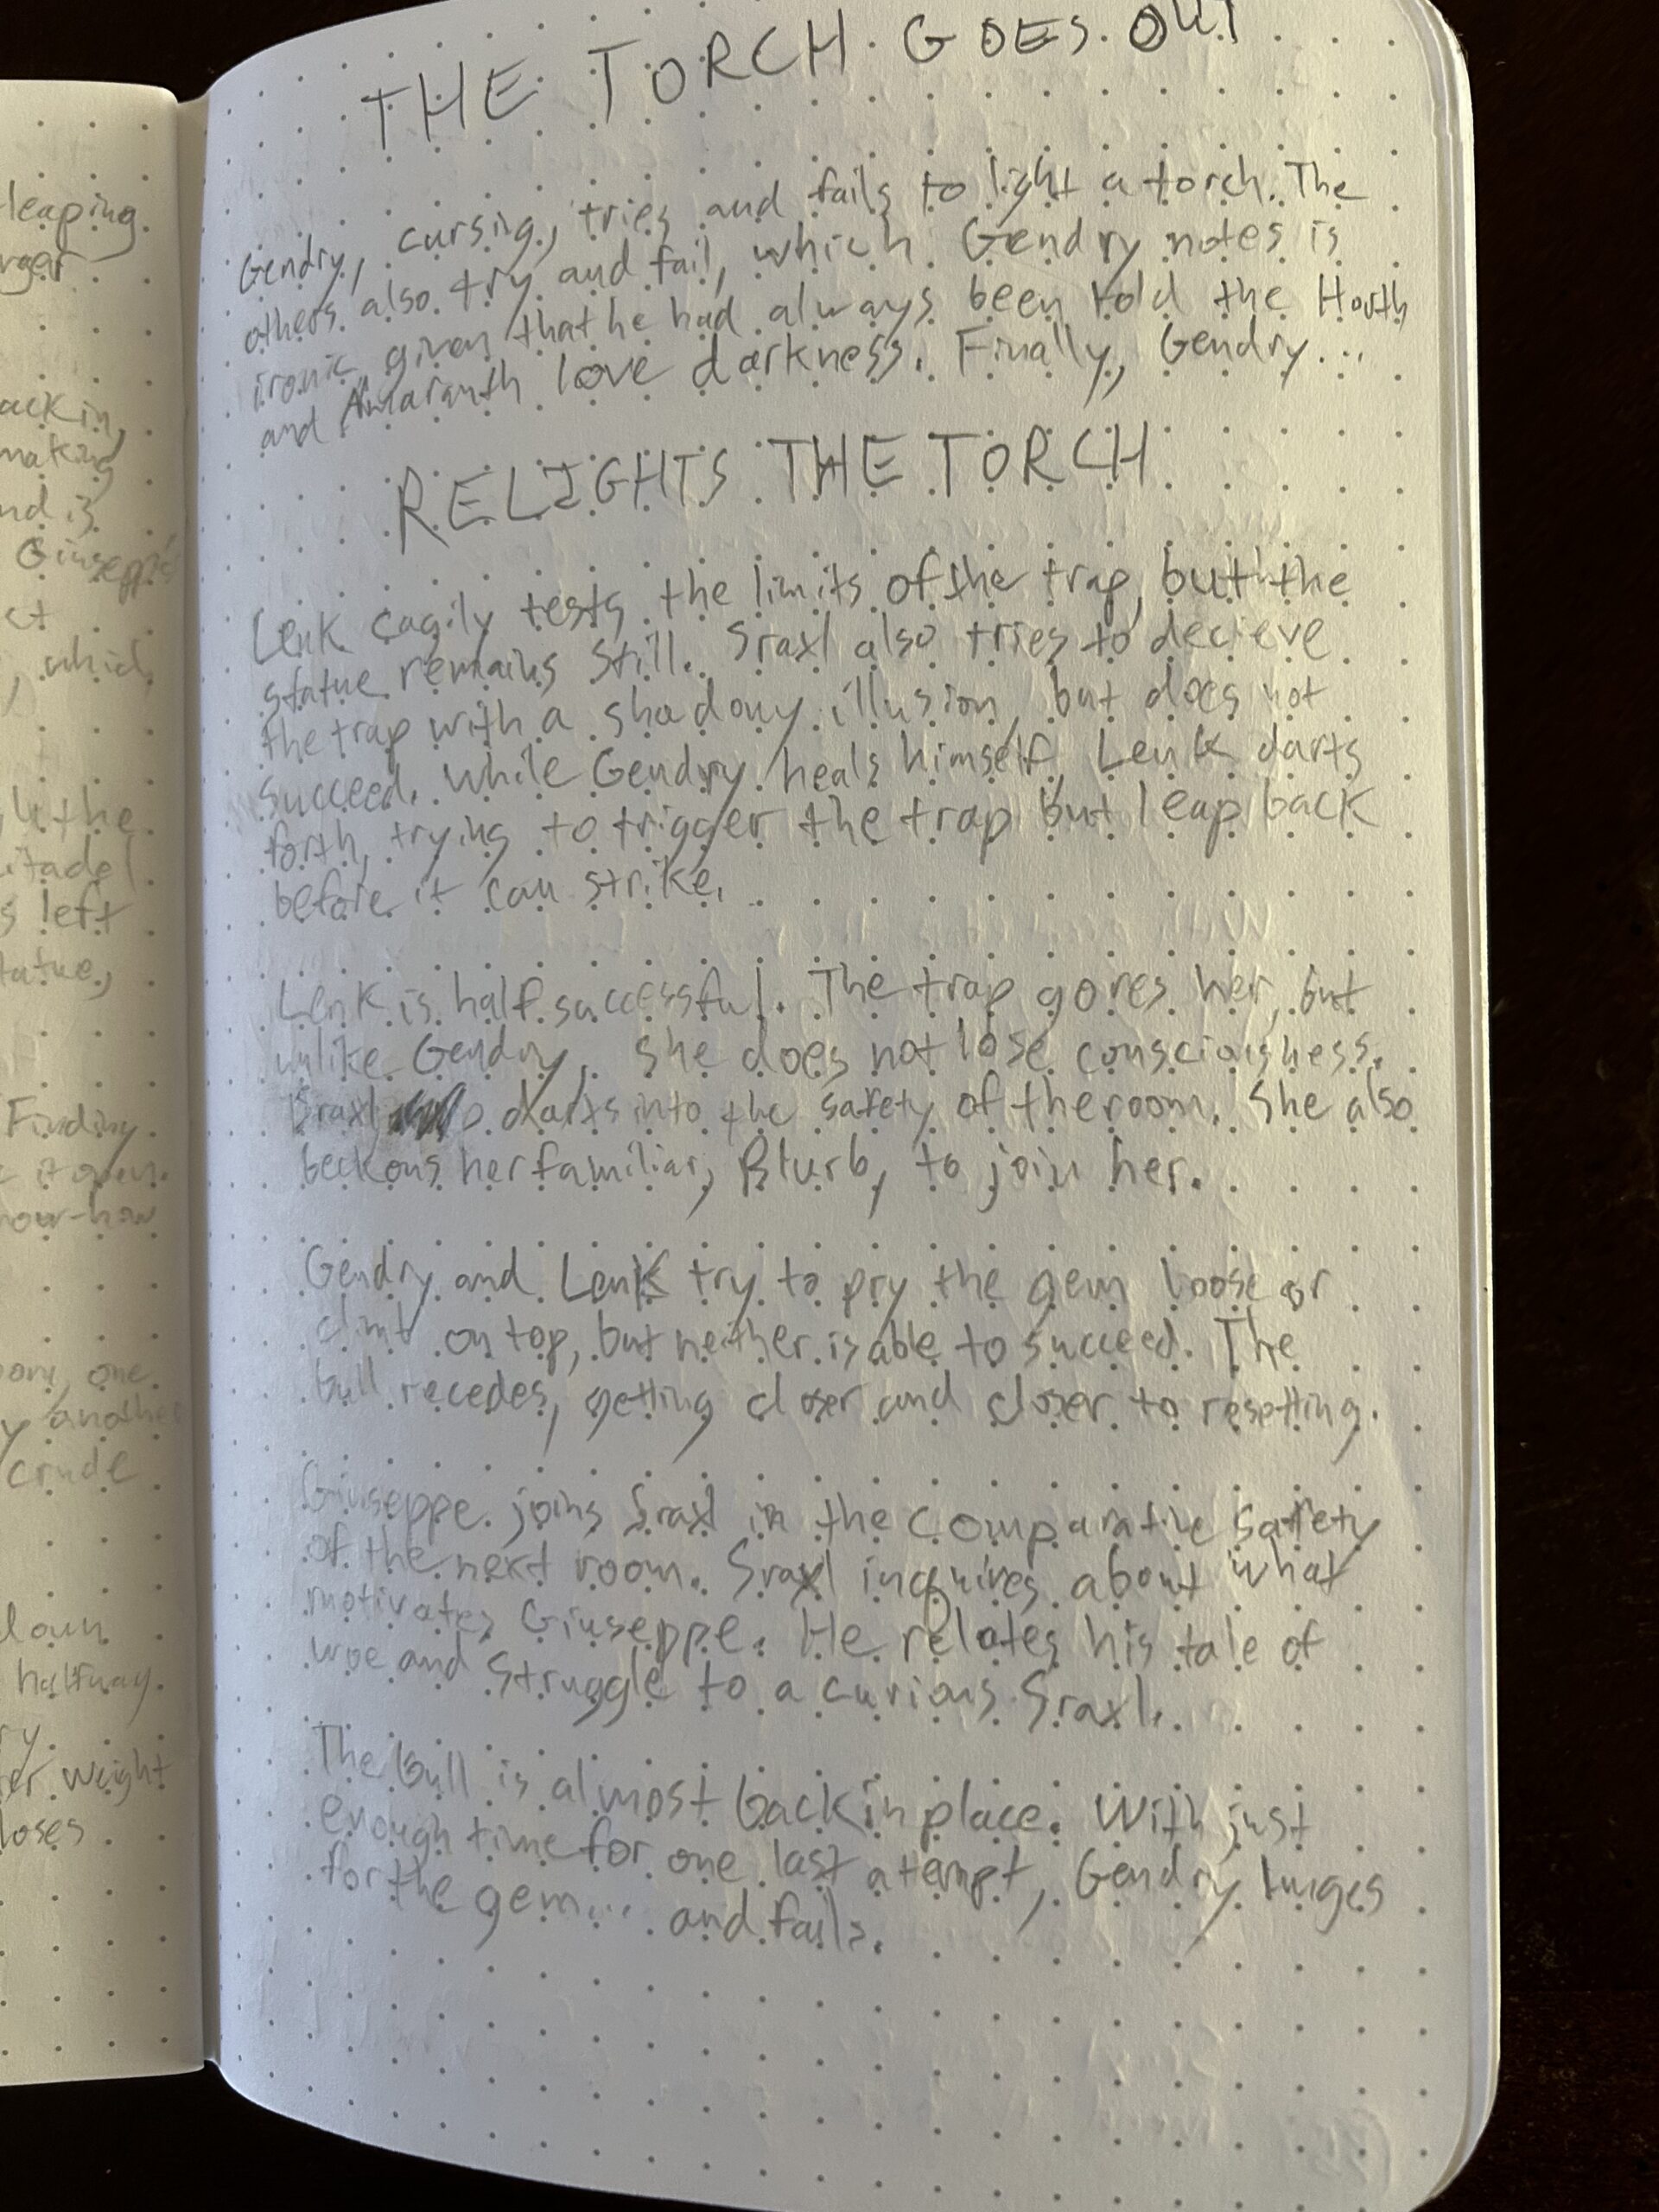 leaping
ack in,
making
nd is
Giuseppe's
ct
, which
the
itadel
s left
tatue,
Finding
it open.
now-how
one
y another
crude
down
halfway.
ry
er weight
loses
THE TORCH GOES OUT
Gendry, cursing, tries and fails to light a torch. The
others also try and fail, which Gendry notes is
ironic given that he had always been told the Horth
and Amaranth love darkness. Finally, Gendry...
RELIGHTS THE TORCH
Lenk cagily tests the limits of the trap, but the
statue remains still. Sraxl also tries to decieve
the trap with a shadowy illusion, but does not
succeed. While Gendry heals himself, Lenk darts
forth, trying to trigger the trap but leap back
before it can strike.
Lenk is half successful. The trap gores her, but
unlike Gendry, she does not lose consciousness.
Sraxl darts into the safety of the room. She also
beckons her familiar, Blurb, to join her.
Gendry and Lenk try to pry the gem loose or
climb on top, but neither is able to succeed. The
bull recedes, getting closer and closer to resetting.
Giuseppe joins Sraxl in the comparative safety
of the next room. Sraxl inquires about what
motivates Giuseppe. He relates his tale of
woe and struggle to a curious Sraxl.
The bull is almost back in place. With just
enough time for one last atempt, Gendry lunges
for the gem... and fails.